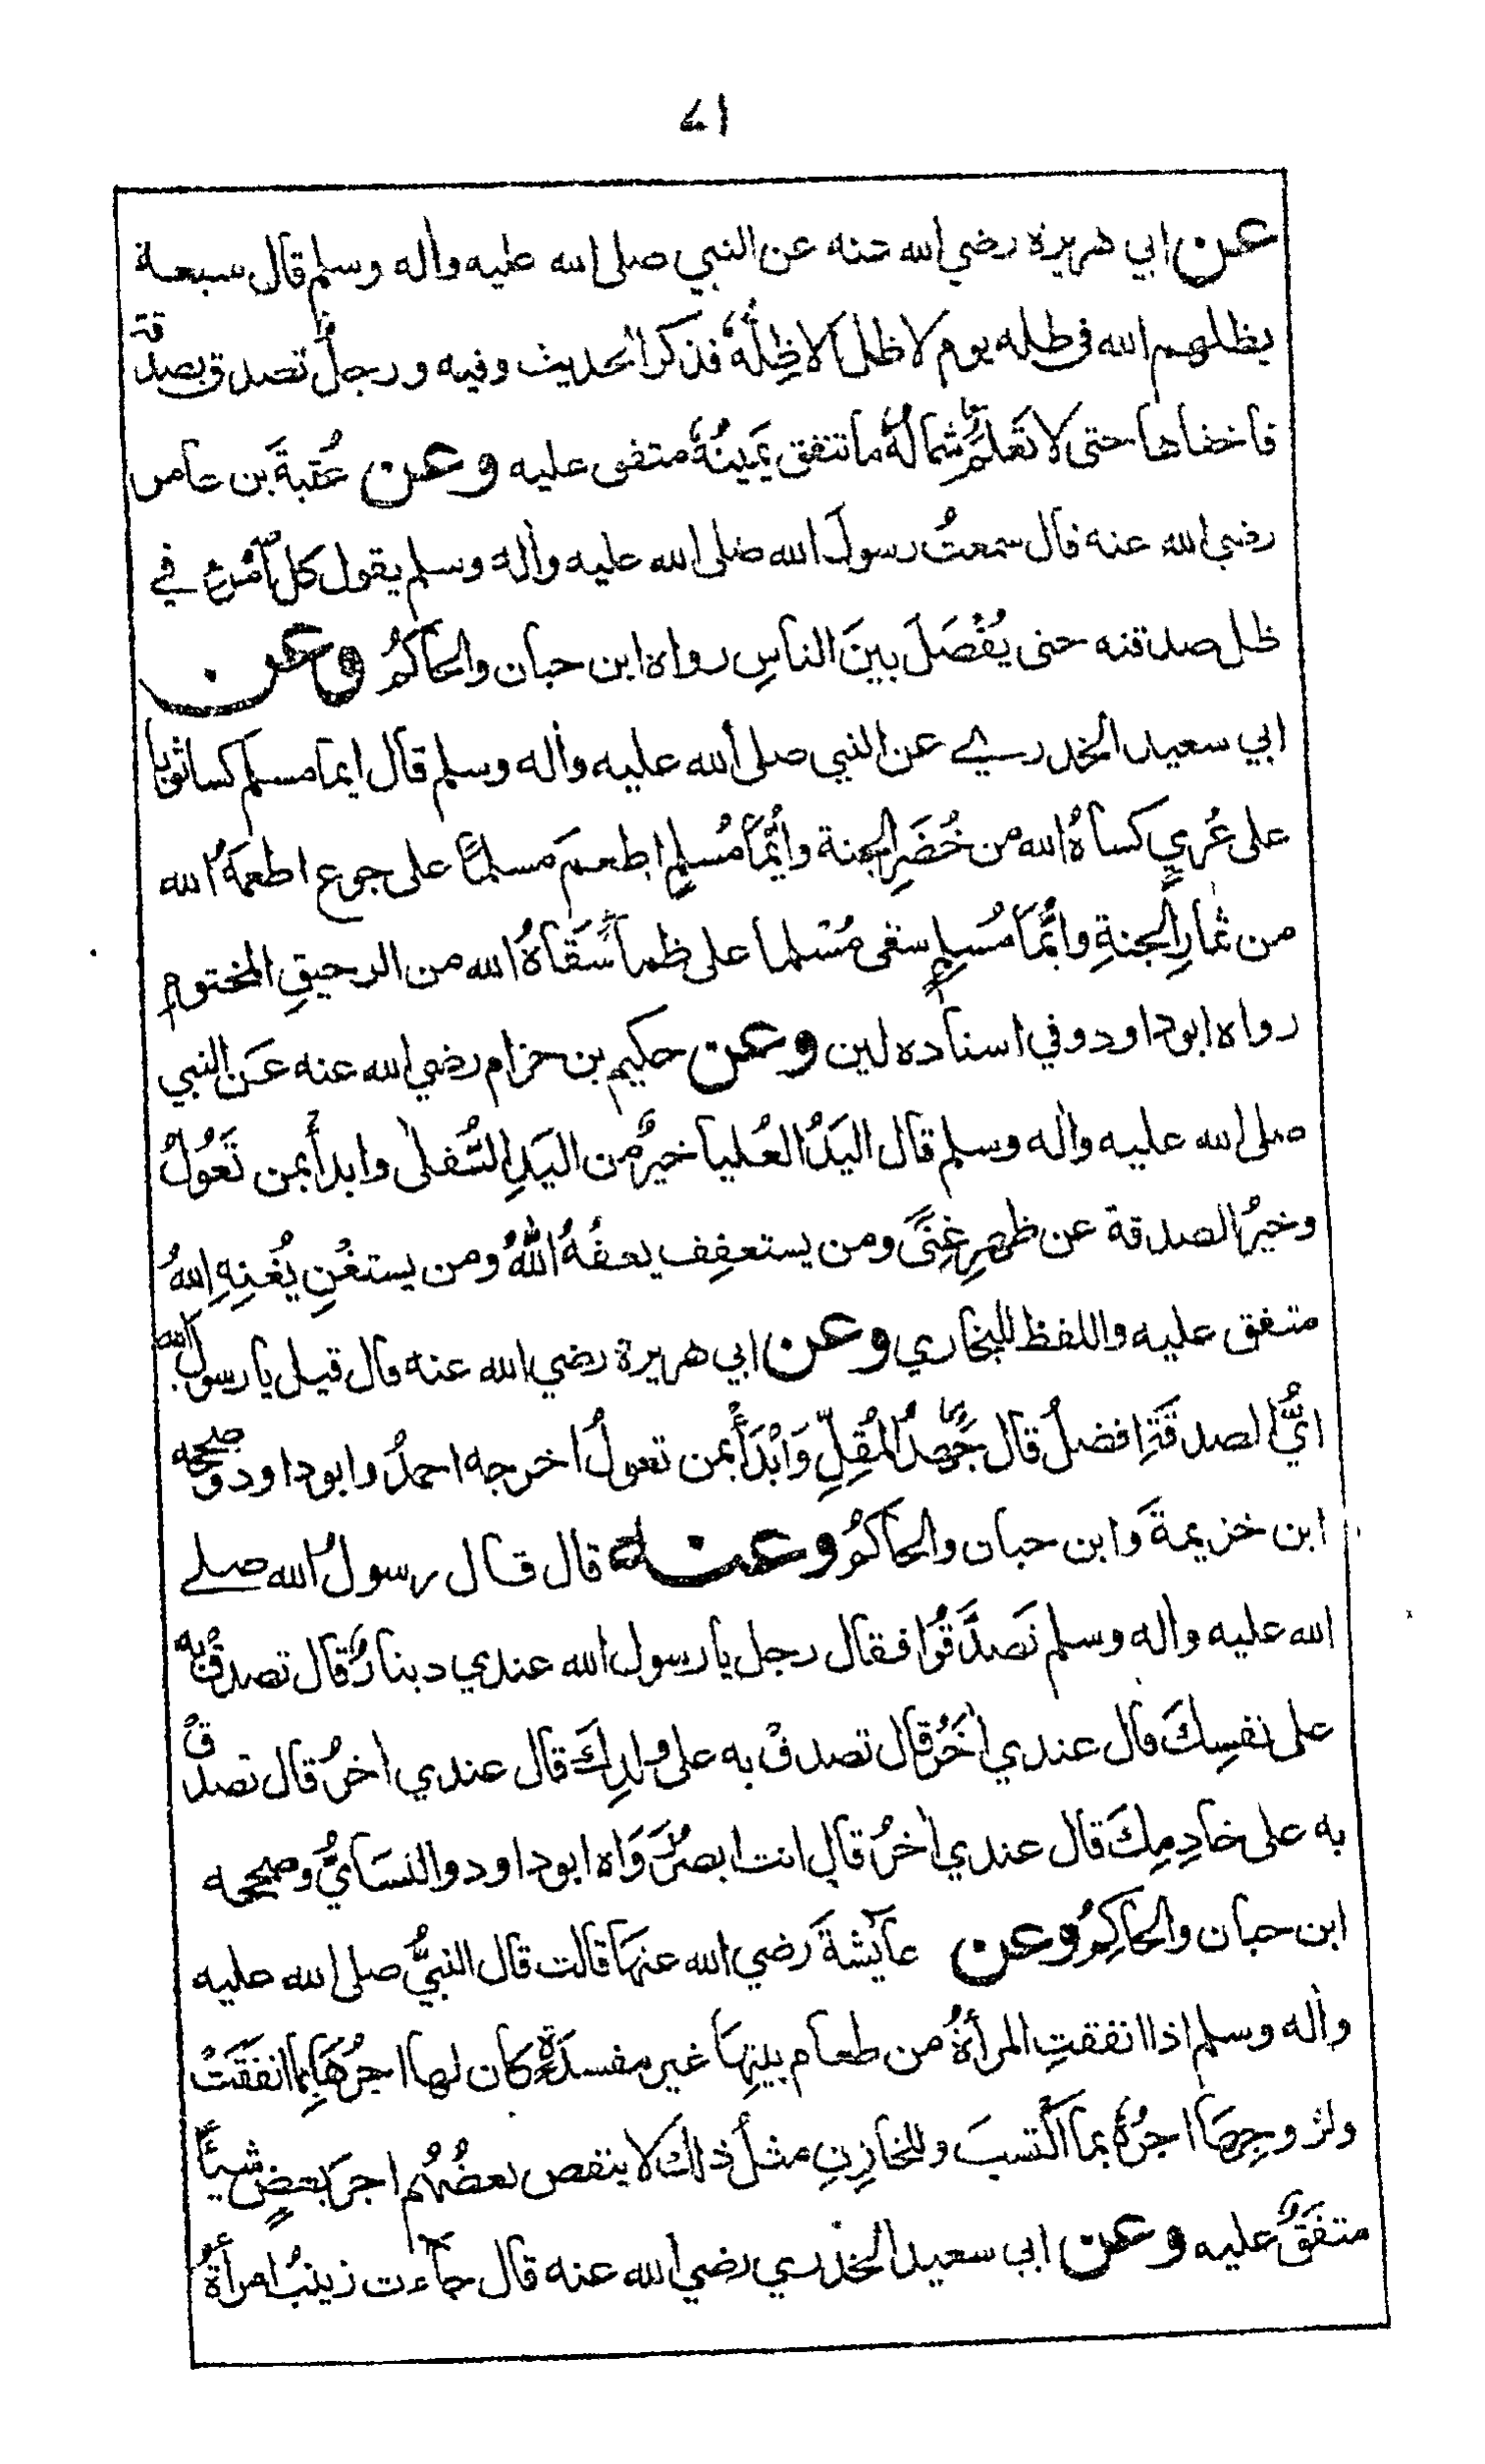 ٧١
عن ابي هريرة رضي الله عنه عن النبي صلى الله عليه واله وسلم قال سبعة
يظلهم الله في ظله يوم لا ظل الا ظِلُّهُ فذكر الحديث وفيه ورجلٌ تصدق بصدقة
فاخفاها حتى لا تَعْلَمَ شمالُهُ ما تنفق يَمينُهُ متفق عليه وعن عُقبةَ بن عامر
رضي الله عنه قال سمعتُ رسولَ الله صلى الله عليه واله وسلم يقول كل امرئ في
ظل صدقته حتى يُفْصَلَ بينَ الناسِ رواه ابن حبان والحاكمُ وعن
ابي سعيد الخدري عن النبي صلى الله عليه واله وسلم قال ايما مسلم كسا ثوبا
على عُريٍ كساهُ الله من خُضَرِ الجنة وايُّما مُسلمٍ اطعمَ مسلمًا على جوع اطعمَهُ الله
من ثمارِ الجنةِ وايُّما مُسلمٍ سقى مُسْلما على ظمأٍ سَقَاهُ الله من الرحيقِ المختوم
رواه ابوداود وفي اسناده لين وعن حكيم بن حزام رضي الله عنه عَن النبي
صلى الله عليه واله وسلم قال اليَدُ العُليا خيرٌ من اليَدِ السُّفلى وابدأْ بمن تَعُولُ
وخيرُ الصدقة عن ظهرِ غِنًى ومن يستعفِف يعفهُ اللهُ ومن يستغْنِ يُغنِهِ اللهُ
متفق عليه واللفظ للبخاري وعن ابي هريرة رضي الله عنه قال قيل يا رسول الله
ايُّ الصدقَةِ افضلُ قال جُهدُ المُقِلِّ وَابْدَأْ بمن تعولُ اخرجه احمدُ وابوداود وصححه
ابن خزيمةَ وابن حبان والحاكمُ وعنه قال قال رسولُ الله صلے
الله عليه واله وسلم تَصدَّقُوا فقال رجل يا رسول الله عندي دينارٌ قال تصدقْ به
على نفسِكَ قال عندي اخَرُ قال تصدقْ به على ولدِكَ قال عندي اخرُ قال تصدقْ
به على خادِمِكَ قال عندي اخرُ قال انت ابصرُ رَوَاه ابوداود والنسَايُّ وصححه
ابن حبان والحاكِمُ وعن عايشةَ رضي الله عنهَا قالت قال النبيُّ صلى الله عليه
واله وسلم اذا انفقتِ المرأةُ من طعام بيتِهَا غير مفسدَةٍ كان لها اجرُهَا بِما انفقَتْ
ولزوجِهَا اجرُهُ بما اكْتسبَ وللخازِنِ مثلُ ذلكَ لا ينقص بعضُهُم اجرَ بعضٍ شيأً
متفَقٌ عليه وعن ابي سعيد الخدري رضي الله عنه قال جاءت زينبُ امرأةُ